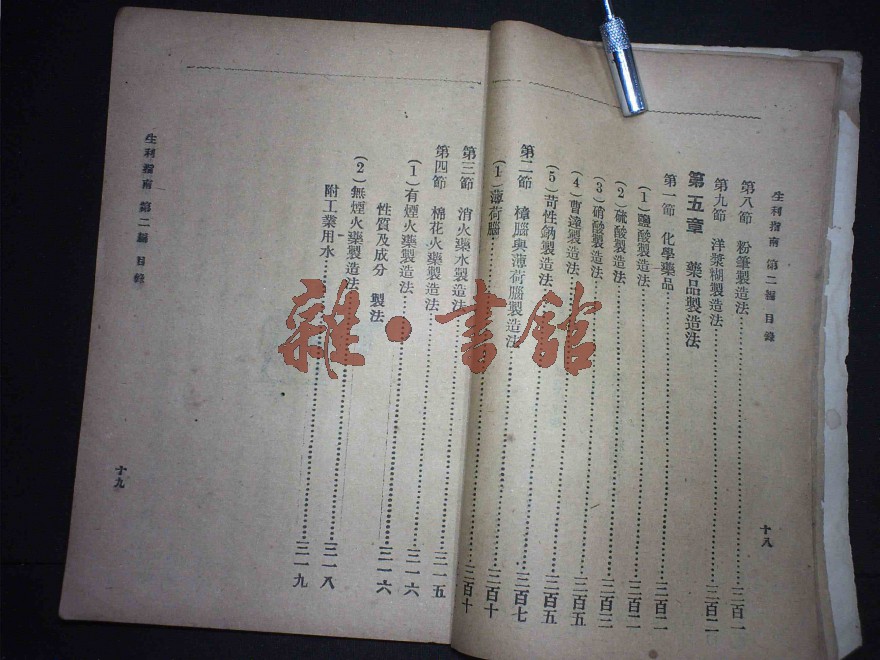 生利指南 第二編 目錄
第八節 粉筆製造法 三百一
第九節 洋漿糊製造法 三百二
第五章 藥品製造法
第一節 化學藥品 三百二
(1)鹽酸製造法 三百二
(2)硫酸製造法 三百二
(3)硝酸製造法 三百三
(4)曹達製造法 三百五
(5)苛性鈉製造法 三百五
第二節 樟腦與薄荷腦製造法 三百七
(1)薄荷腦 三百十
十八
第三節 消火藥水製造法 三百十
第四節 棉花火藥製造法 三一五
(1)有煙火藥製造法 三一六
性質及成分 製法 三一六
(2)無煙火藥製造法 三一八
附工業用水 三一九
生利指南 第二編 目錄
十九
雜·書館